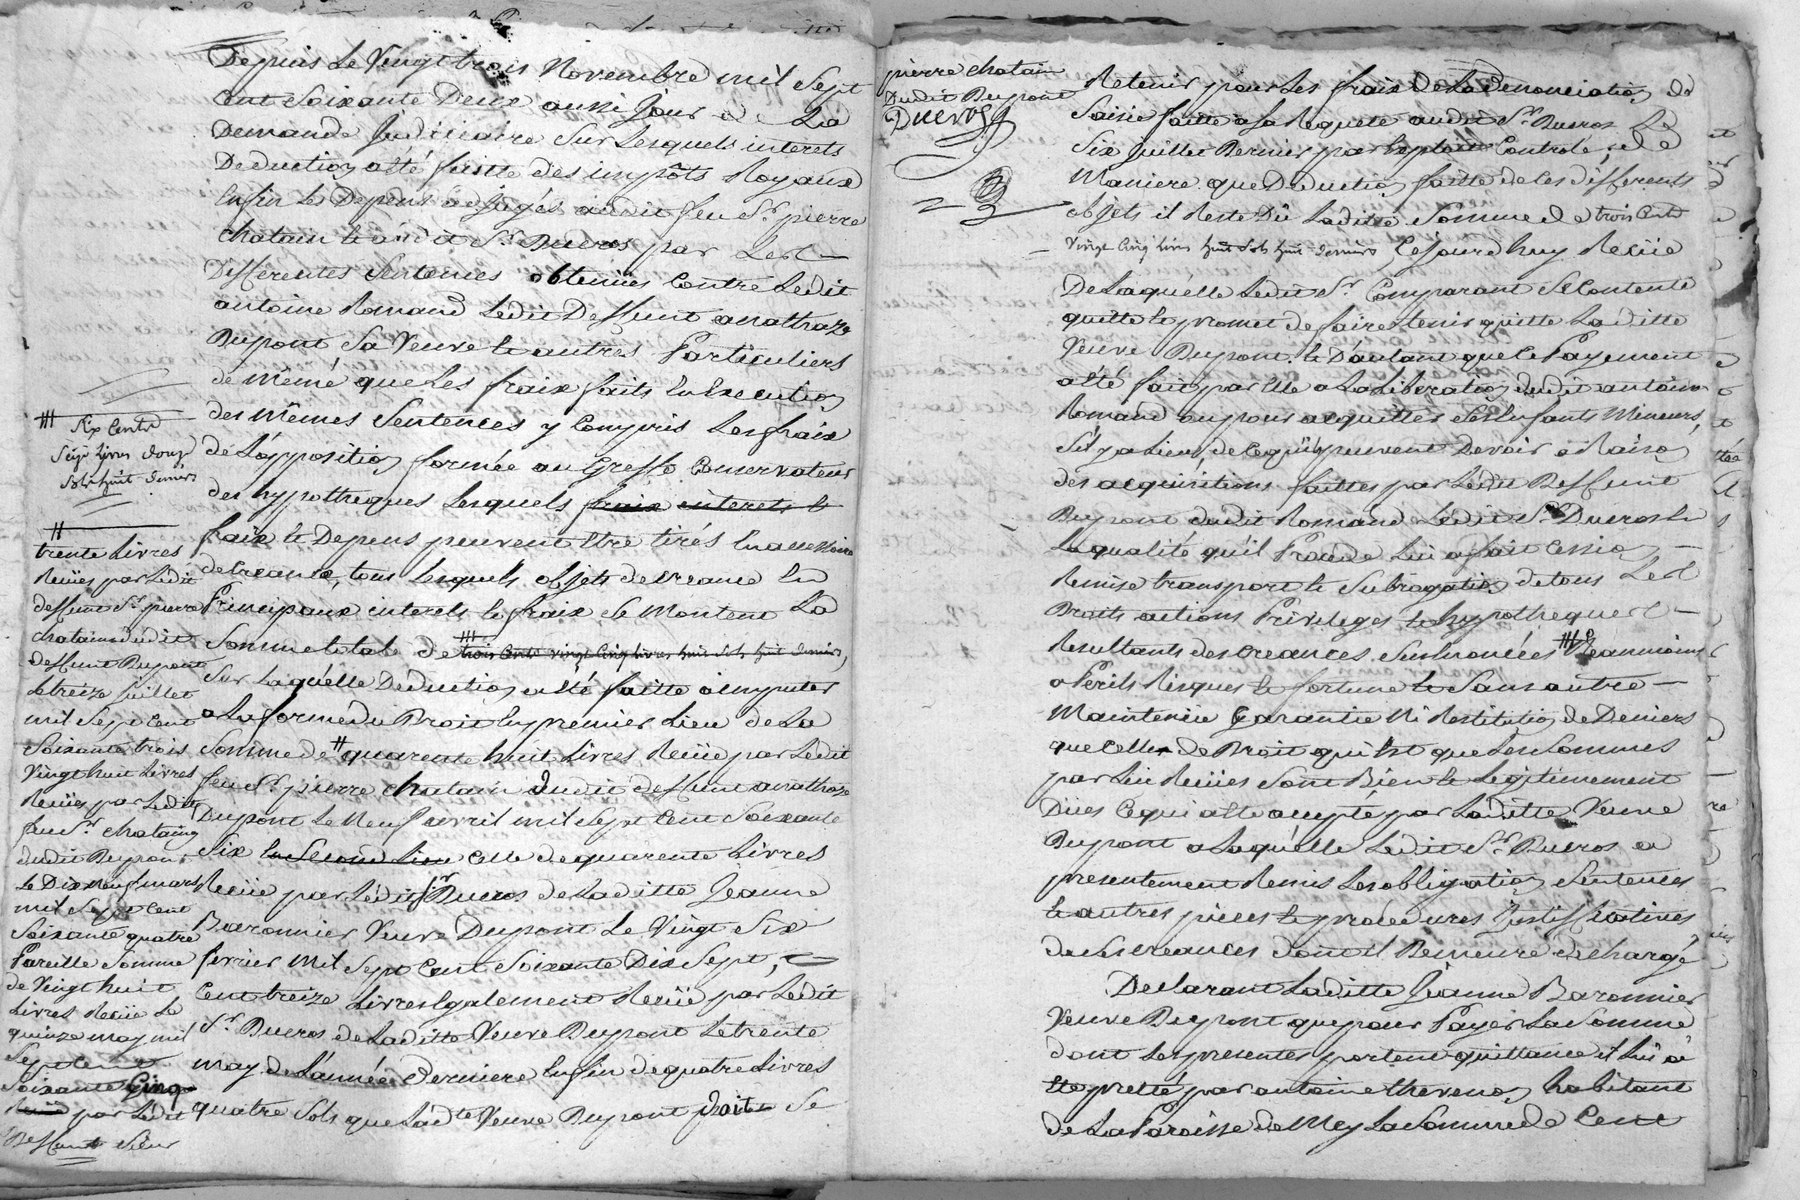 Depuis Le Vingt trois Novembre mil Sept
Cent Soixante Deux aussi Jour de La
Demande Judiciaire Sur Lesquels interets
Deduction a été faitte des impôts Royaux
Enfin les Depens adjugés audit feu Sr. pierre
chatain et audit Sr. Ducros par Les
Differentes Sentences obtenües Contre Ledit
antoine Romand Ledit Deffunt
Dupont Sa Veuve et autres Particuliers
de même que Les fraix faits En Execution
des mêmes Sentences y Compris Les fraix
de L'opposition formée au Greffe Conservateur
des hypotheques Lesquels fraix interets et
fraix et Depens peuvent Etre tirés
de Creance, tous Lesquels objets de creance En
Principaux interets et fraix Se Montent La
Somme totale de trois Cents vingt Cinq livres huit Sols huit deniers,
Sur Laquélle Deduction a été faitte à imputer
a La forme du Droit En premier Lieu de La
Somme de # quarente huit Livres Reçüe par Ledit
feu Sr. pierre chatain dudit deffunt
Dupont Le Neuf avril mil Sept Cent Soixante
Six En Second Lieu Celle de quarente Livres
Reçüe par Ledit Sr Ducros de Laditte Jeanne
Baronnier Veuve Dupont Le Vingt Six
fevrier Mil Sept Cent Soixante Dix Sept,
Cent treize Livres Egalement Reçüe par Ledit
Sr. Ducros de Laditte Veuve Dupont Le trente
may de L'année Derniere Enfin de quatre Livres
quatre Sols que Ladte Veuve Dupont Se
Six Cents
Seize Livres douze
Sols huit deniers
#
trente Livres
Reçües par Ledit
deffunt Sr. pierre
chatain dudit
Deffunt Dupont
Le treize Juillet
mil Sept Cent
Soixante trois
Vingt huit Livres
Reçües par Ledit
feu Sr. chatain
dudit Dupont
Le Dix neuf mars
mil Sept Cent
Soixante quatre
Pareille Somme
de Vingt huit
Livres Reçüe Le
quinze may mil
Sept Cent
Soixante Cinq
Reçüe par Ledit
Deffunt Sieur
pierre chatain
Dudit Dupont
Ducros
Retenir pour Les fraix De La Denonciation de
Saisie faitte a Sa Requete audit Sr. Ducros Le
Six Juillet Dernier par Exploit Controlé, de
Maniere que Deduction faitte de Ces differents
objets il Reste Dû Laditte Somme de trois Cents
Vingt Cinq livres huit Sols huit deniers Cejourd'huy Reçüe
De Laquélle Ledit Sr. Comparant Se Contente
quitte et promet de faire tenir quitte Laditte
Veuve Dupont, et D'autant que Ce Payement
a été fait par Elle a La Liberation dudit antoine
Romand ou pour acquitter Ses Enfants Mineurs,
S'il y a Lieu, de Ce qu'ils peuvent Devoir a Raison
des acquisitions faittes par Ledit Deffunt
Dupont dudit Romand Ledit Sr. Ducros En
La qualité qu'il Procede Lui a fait Cession
Remise transport et Subrogation de tous Les
Droits actions Privileges et hypotheques
Resultants des creances Susenoncées Neanmoins
a Perils Risques et fortune et Sans autre
Maintenüe Garantie Ni Restitution de Deniers
que Celle de Droit qui Est que Les Sommes
par Lui Reçües Sont Bien et Legitimement
Dües Ce qui a Eté accepté par Laditte Veuve
Dupont a Laquélle Ledit Sr. Ducros a
presentement Remis Les obligation Sentences
et autres pieces et procedures Justifficatives
de Ses creances dont il Demeure dechargé
Declarant Laditte Jeanne Baronnier
Veuve Dupont que pour Payer La Somme
dont Les presentes portent quittance il Lui a
Eté pretté par antoine thevenon habitant
de La Paroisse de Mey La Somme de Cent